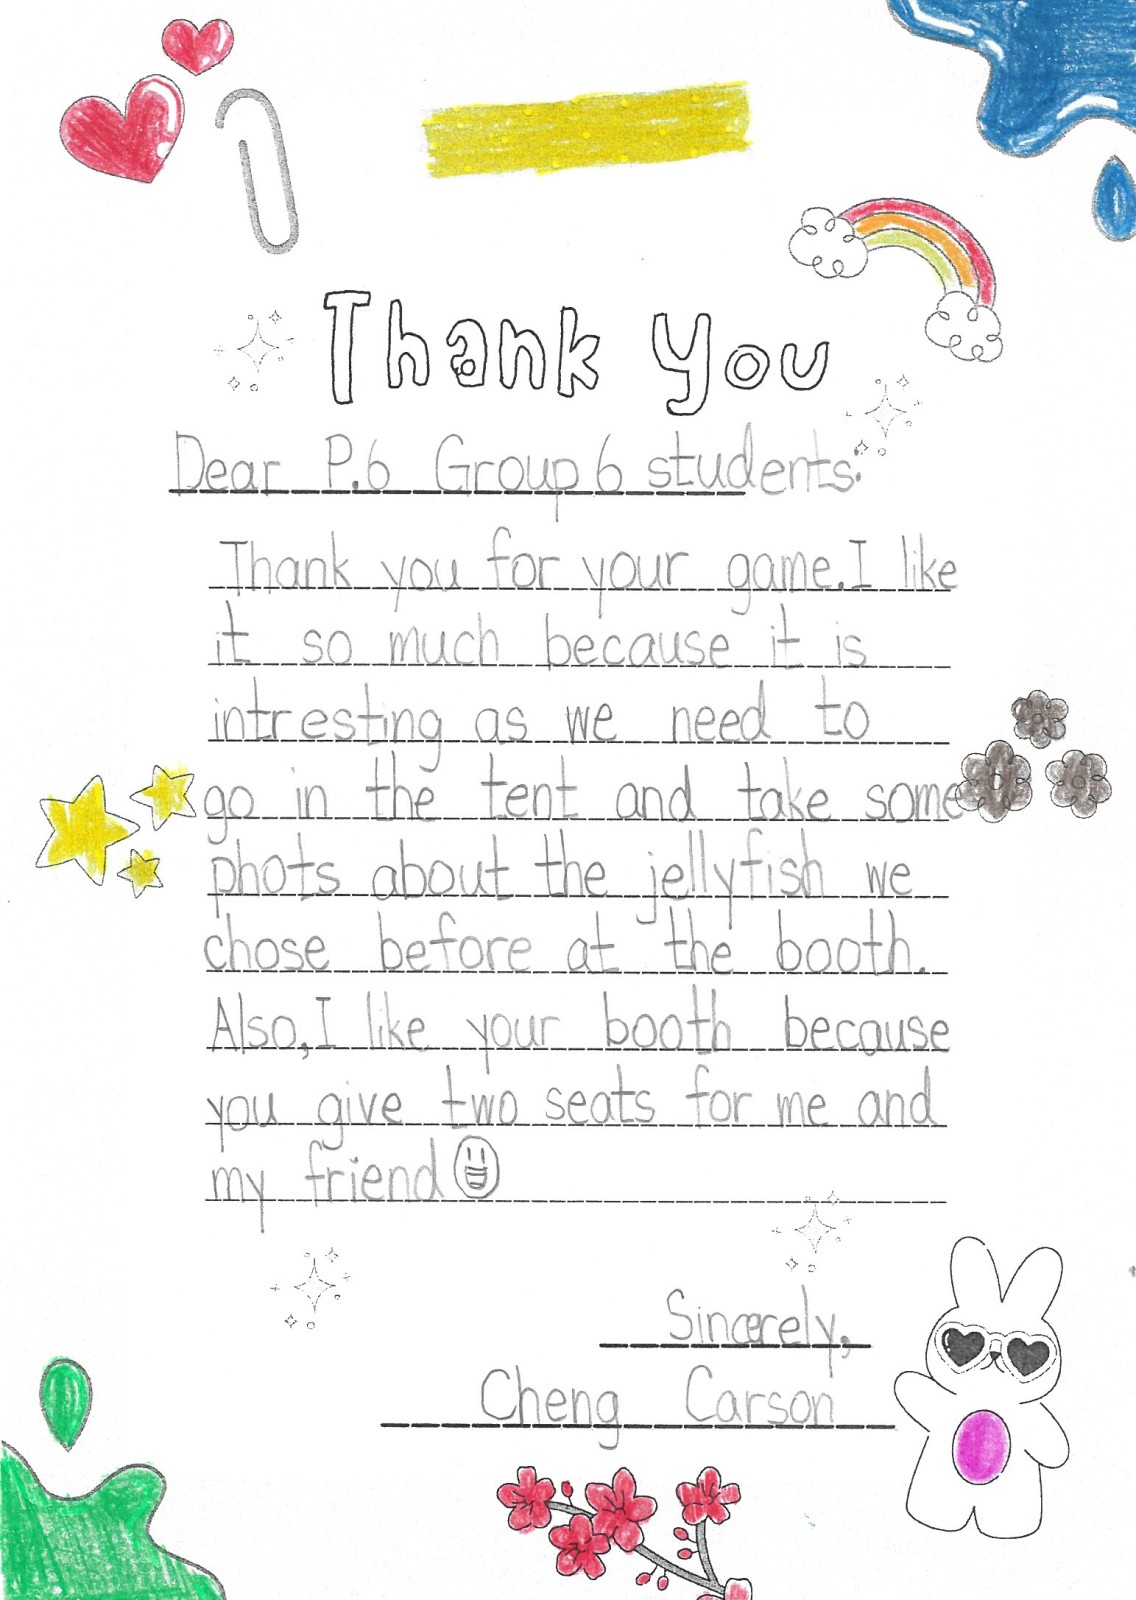 Thank You
Dear P.6 Group 6 students:
Thank you for your game. I like
it so much because it is
intresting as we need to
go in the tent and take some
phots about the jellyfish we
chose before at the booth.
Also, I like your booth because
you give two seats for me and
my friend
Sincerely,
Cheng Carson